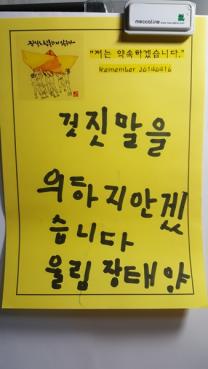 "저는 약속하겠습니다."
Remember 20140416
것짓말을
의하지안겠
습니다
울림 장태양